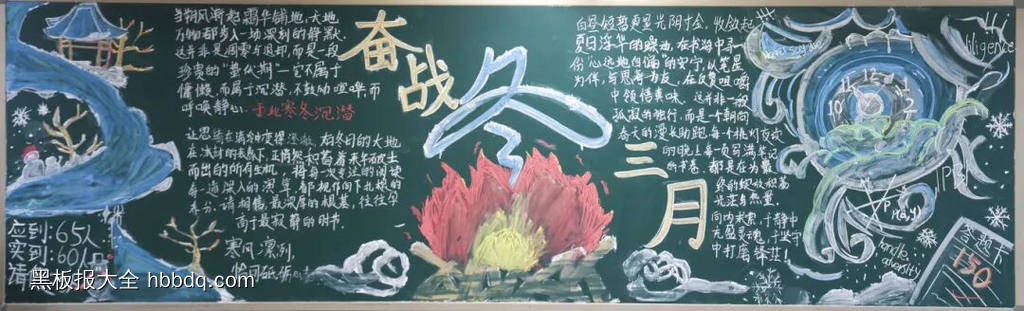 当朔风渐起霜华铺地，天地
万物都步入一场深刻的静默。
这并非是凋零与退却，而是一段
珍贵的“蓄伏期”—它不属于
慵懒，而属于沉潜，不鼓励喧哗，而
呼唤静心。于此寒冬沉潜
让思绪在清冷中变得澄澈，如冬日的大地
在冰封的表层下，正悄然积蓄着来年破土
而出的所有生机，将每一次专注的阅读
每一道深入的演算，都视作向下扎根的
养分。请相信，最深厚的根基，往往孕
育于最寂静的时节。
寒风凛冽，
奋战
冬
三
月
白昼短暂更显光阴十金，收敛起
夏日浮华的躁动，在书海中寻一
份“心远地自偏”的安宁，以笔墨
为伴，与思考为友，在反复咀嚼
中领悟真味。这并非一段
孤寂的独行，而是一中朝向
春天的漫长助跑，每个挑灯夜读
的晚上，每一页写满笔记
的书卷，都是在为最
终的绽放积蓄
光芒与热量。
向内求索，于静中
充盈灵魂，于坚守
中打磨锋芒！
diligence
11 12 1
10 2
P(x,y)
handle
adversity
答题卡
150
应到：65人
实到：60人
请
黑板报大全 hbbdq.com